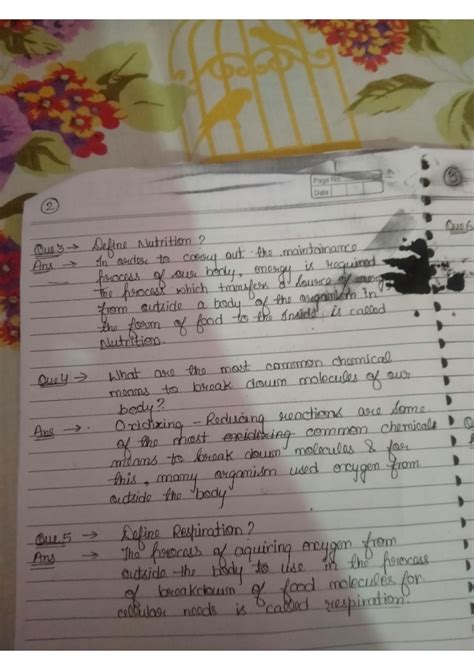 Page No.
Date
2
3
Que 3 → Define Nutrition?
Que 6
Ans → In order to carry out the maintainance
process of our body, energy is required
The process which transfer a source of energy
from outside a body of the organism in
the form of food to the inside is called
Nutrition.
Que 4 → What are the most common chemical
means to break down molecules of our
body?
Ans → . Oxidizing - Reducing reactions are some
of the most oxidizing common chemicals
means to break down molecules & for
this, many organism used oxygen from
outside the body
Que.5 → Define Respiration?
Ans → The process of aquiring oxygen from
outside the body to use in the process
of breakdown of food molecules for
cellular needs is called respiration.